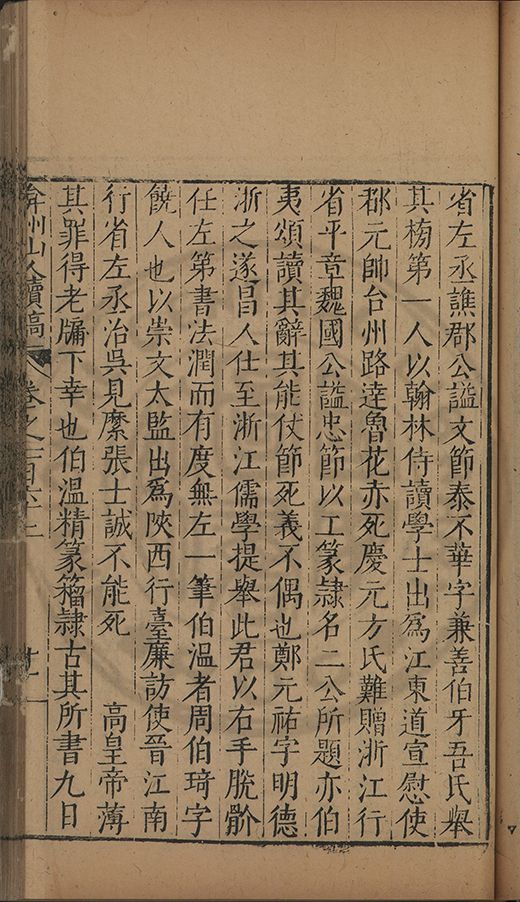 省左丞譙郡公謚文節泰不華字兼善伯牙吾氏舉
其榜第一人以翰林侍讀學士出爲江東道宣慰使
都元帥台州路達魯花赤死慶元方氏難贈浙江行
省平章魏國公謚忠節以工篆隸名二公所題亦伯
夷頌讀其辭其能仗節死義不偶也鄭元祐字明德
浙之遂昌人仕至浙江儒學提舉此君以右手脫骱
任左第書法潤而有度無左一筆伯溫者周伯琦字
饒人也以崇文太監出爲陝西行臺廉訪使晉江南
行省左丞治吳見縻張士誠不能死　高皇帝薄
其罪得老牖下幸也伯溫精篆籀隸古其所書九日
弇州山人續稿　卷之一百六十二